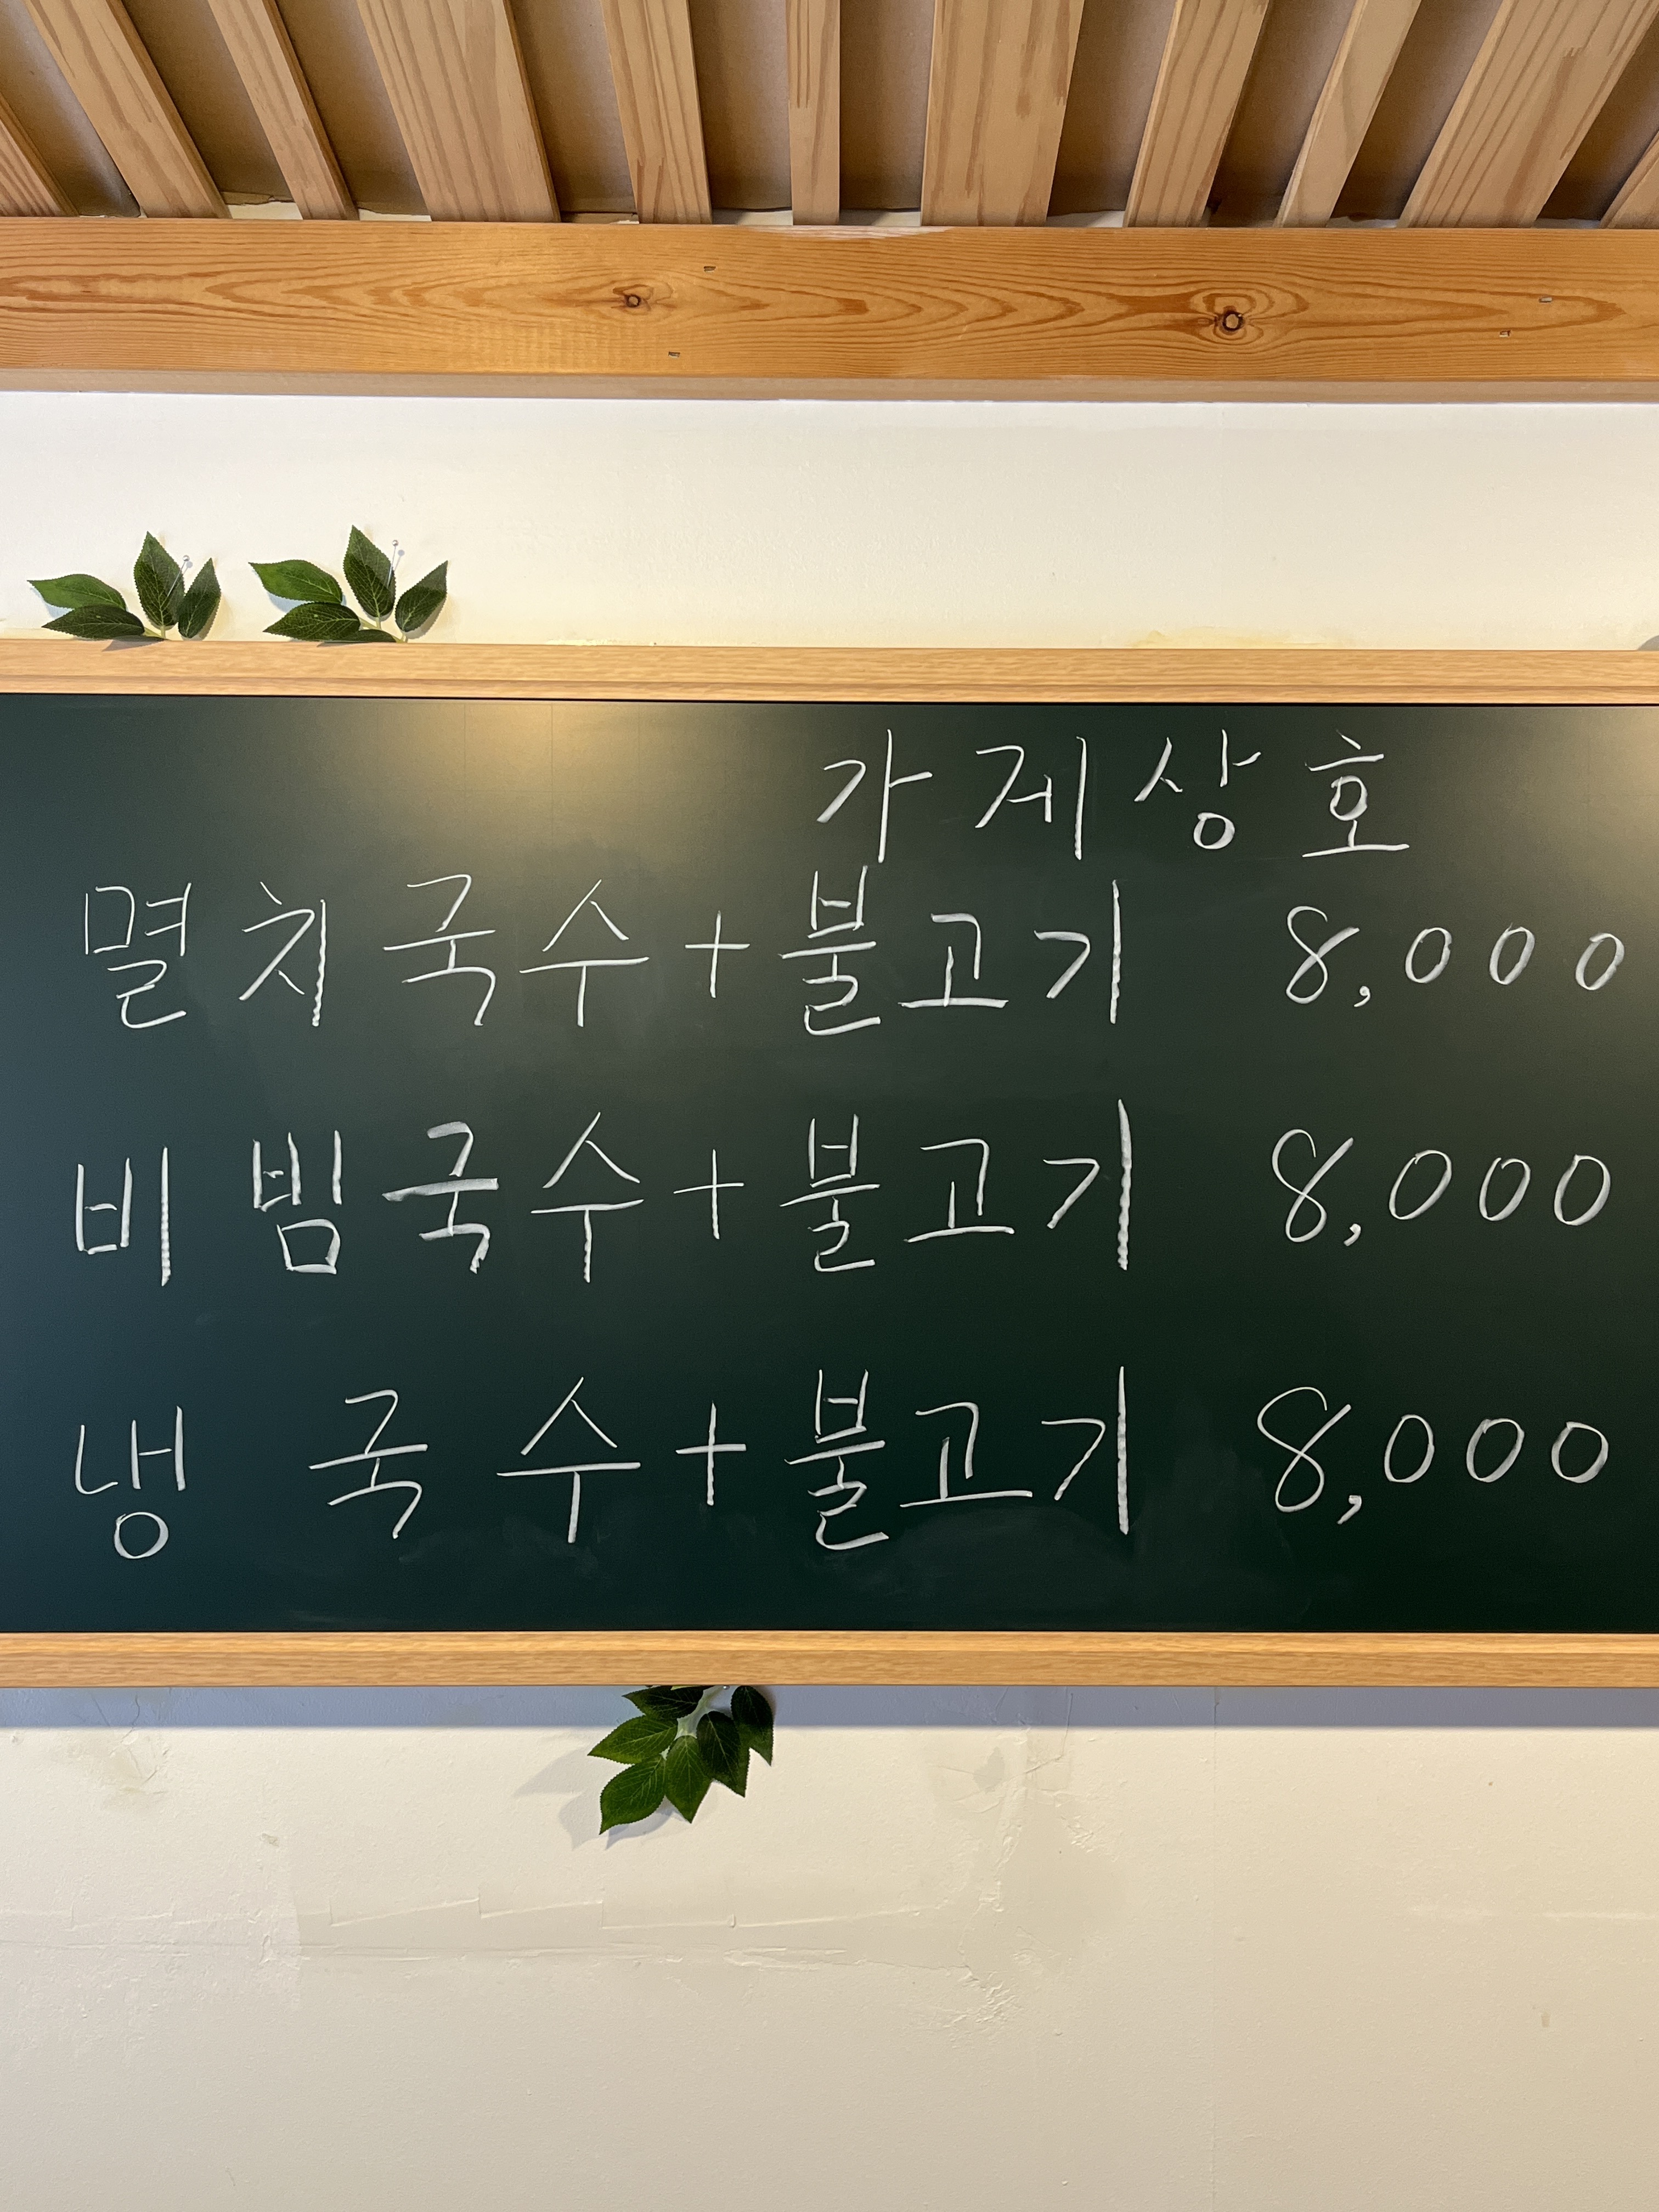 가제상호
멸치국수+불고기 8,000
비빔국수+불고기 8,000
냉 국수+불고기 8,000